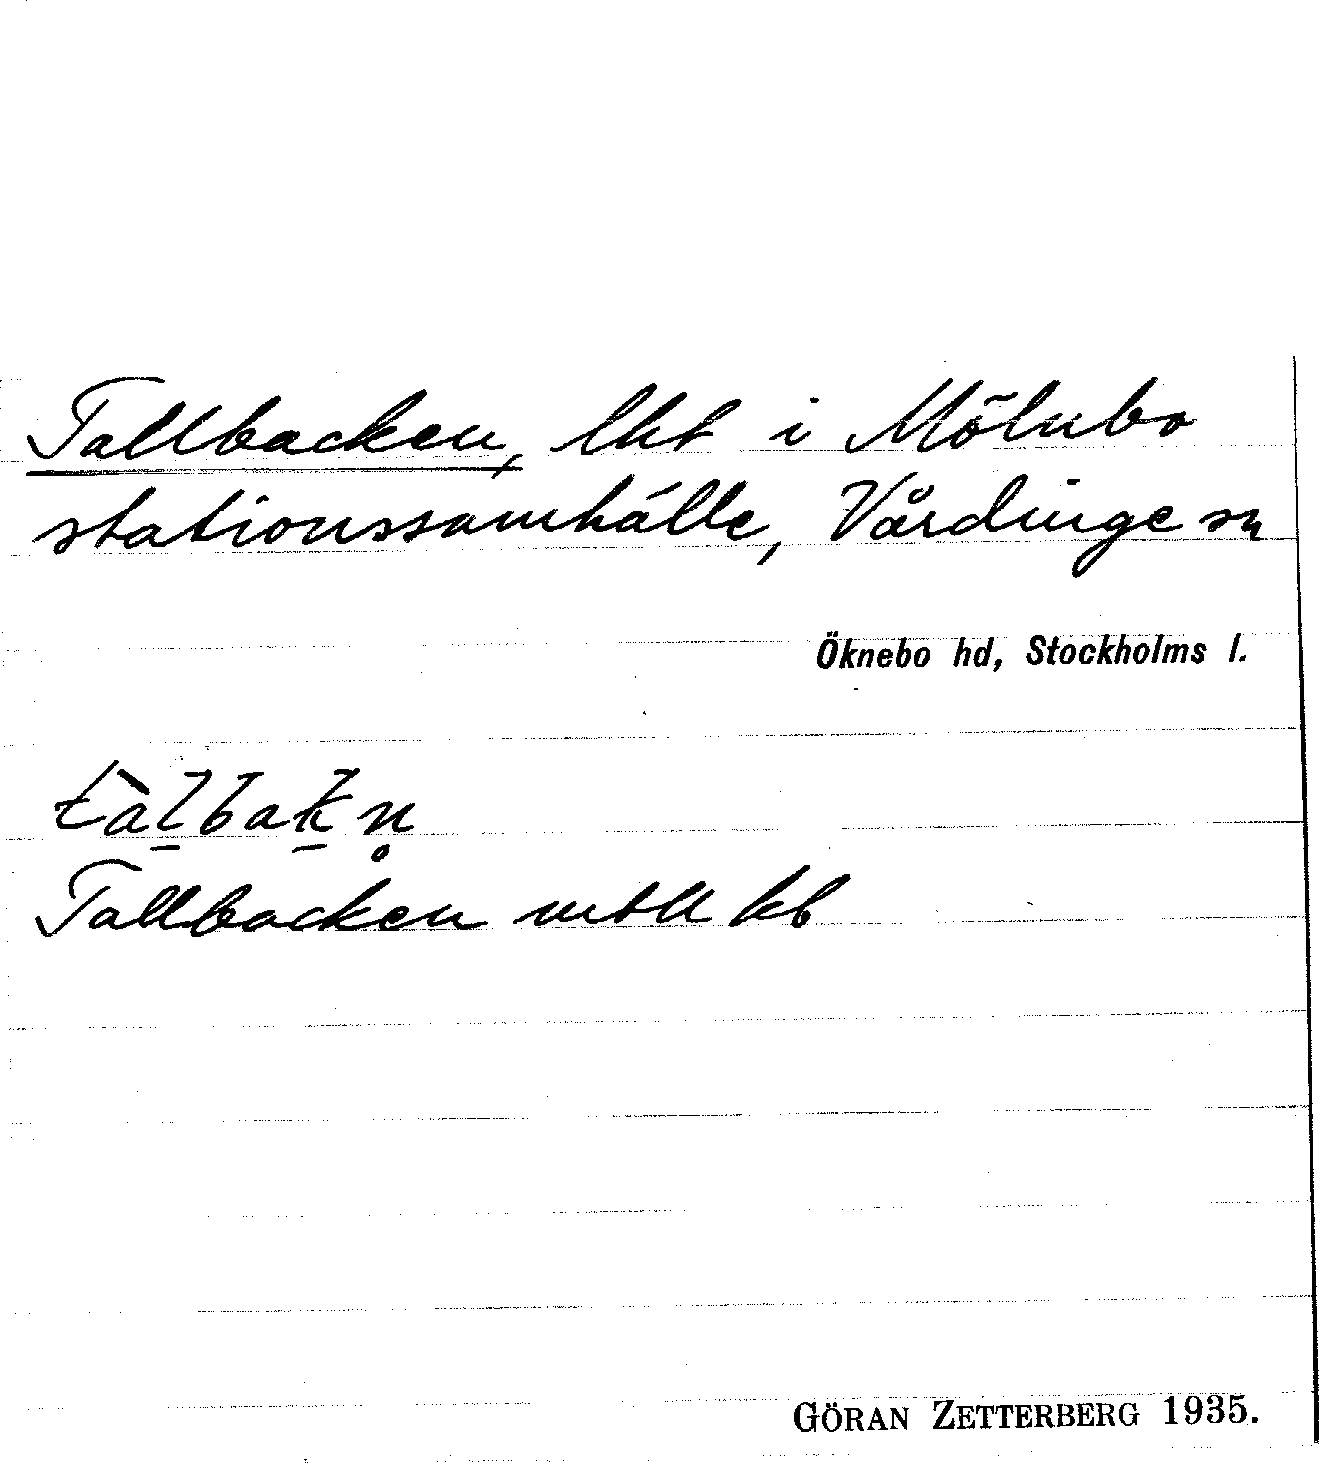 Tallbacken, lht i Mölnbo
stationssamhälle, Vårdinge sn
Öknebo hd, Stockholms l.
tàlbakn̥
Tallbacken mtll kb
GÖRAN ZETTERBERG 1935.